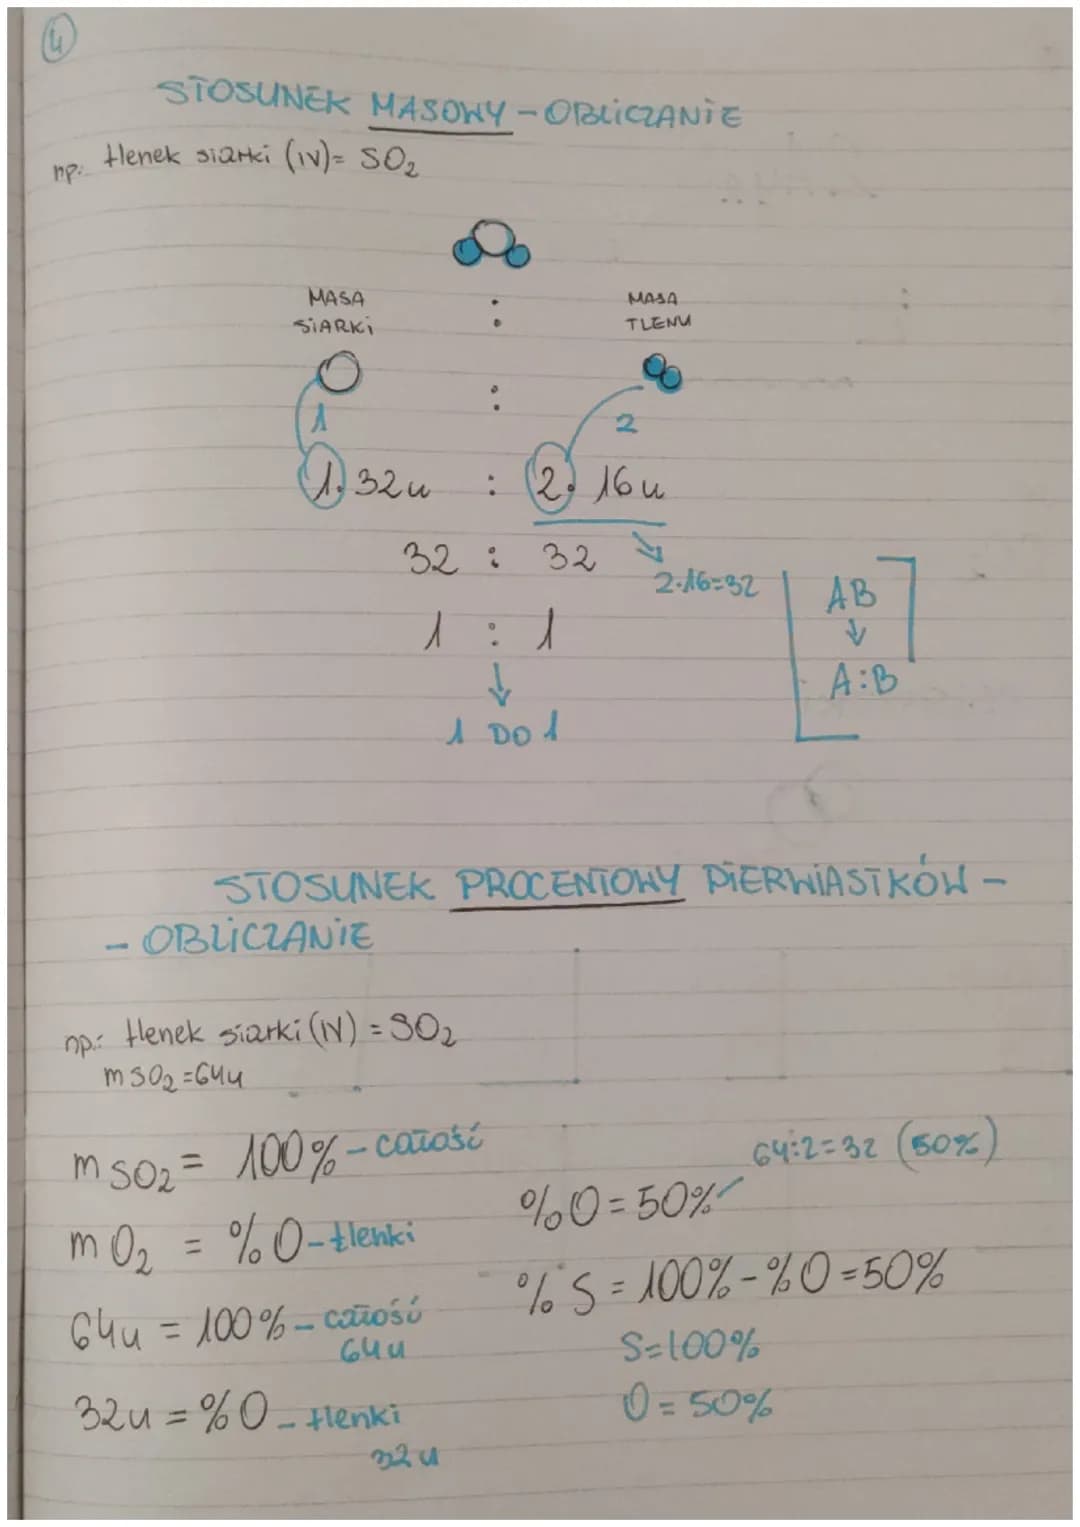 4
STOSUNEK MASOWY - OBLICZANIE
np.: tlenek siarki (IV) = SO₂
MASA : MASA
SIARKI TLENU
:
1 2
1. 32u : 2. 16u
32 : 32
2·16=32
1 : 1
↓
1 DO 1
AB
↓
A:B
STOSUNEK PROCENTOWY PIERWIASTKÓW -
- OBLICZANIE
np.: tlenek siarki (IV) = SO₂
m SO₂ = 64u
m SO₂ = 100% - całość
64:2=32 (50%)
%O = 50%
m O₂ = %O - tlenki
%S = 100% - %O = 50%
64u = 100% - całość
64u
S=100%
32u = %O - tlenki
32u
O = 50%